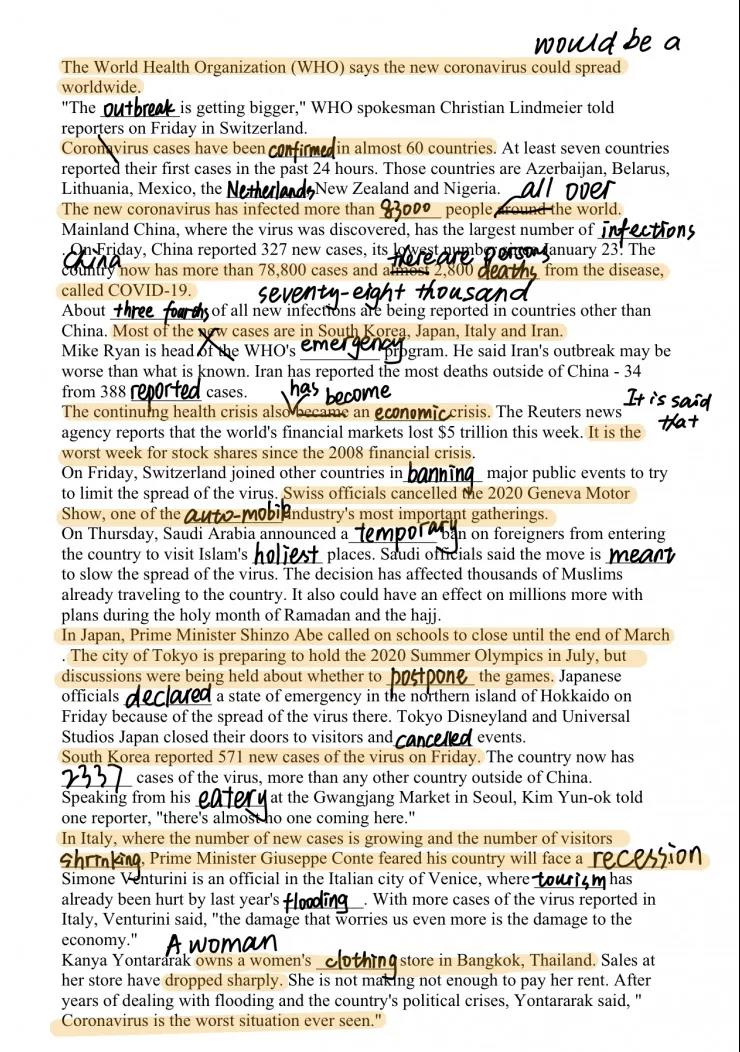 would be a
The World Health Organization (WHO) says the new coronavirus could spread
worldwide.
"The outbreak is getting bigger," WHO spokesman Christian Lindmeier told
reporters on Friday in Switzerland.
Coronavirus cases have been confirmed in almost 60 countries. At least seven countries
reported their first cases in the past 24 hours. Those countries are Azerbaijan, Belarus,
Lithuania, Mexico, the Netherlands New Zealand and Nigeria.
all over
The new coronavirus has infected more than 83000 people around the world.
Mainland China, where the virus was discovered, has the largest number of infections
. On Friday, China reported 327 new cases, its lowest number since January 23. The
China there are persons
country now has more than 78,800 cases and almost 2,800 deaths from the disease,
called COVID-19.
seventy-eight thousand
About three fourths of all new infections are being reported in countries other than
China. Most of the new cases are in South Korea, Japan, Italy and Iran.
Mike Ryan is head of the WHO's emergency program. He said Iran's outbreak may be
worse than what is known. Iran has reported the most deaths outside of China - 34
from 388 reported cases.
has become
The continuing health crisis also became an economic crisis. The Reuters news
It is said that
agency reports that the world's financial markets lost $5 trillion this week. It is the
worst week for stock shares since the 2008 financial crisis.
On Friday, Switzerland joined other countries in banning major public events to try
to limit the spread of the virus. Swiss officials cancelled the 2020 Geneva Motor
Show, one of the auto-mobile industry's most important gatherings.
On Thursday, Saudi Arabia announced a temporary ban on foreigners from entering
the country to visit Islam's holiest places. Saudi officials said the move is meant
to slow the spread of the virus. The decision has affected thousands of Muslims
already traveling to the country. It also could have an effect on millions more with
plans during the holy month of Ramadan and the hajj.
In Japan, Prime Minister Shinzo Abe called on schools to close until the end of March
. The city of Tokyo is preparing to hold the 2020 Summer Olympics in July, but
discussions were being held about whether to postpone the games. Japanese
officials declared a state of emergency in the northern island of Hokkaido on
Friday because of the spread of the virus there. Tokyo Disneyland and Universal
Studios Japan closed their doors to visitors and cancelled events.
South Korea reported 571 new cases of the virus on Friday. The country now has
2337 cases of the virus, more than any other country outside of China.
Speaking from his eatery at the Gwangjang Market in Seoul, Kim Yun-ok told
one reporter, "there's almost no one coming here."
In Italy, where the number of new cases is growing and the number of visitors
shrinking, Prime Minister Giuseppe Conte feared his country will face a recession
Simone Venturini is an official in the Italian city of Venice, where tourism has
already been hurt by last year's flooding. With more cases of the virus reported in
Italy, Venturini said, "the damage that worries us even more is the damage to the
economy."
A woman
Kanya Yontararak owns a women's clothing store in Bangkok, Thailand. Sales at
her store have dropped sharply. She is not making not enough to pay her rent. After
years of dealing with flooding and the country's political crises, Yontararak said, "
Coronavirus is the worst situation ever seen."